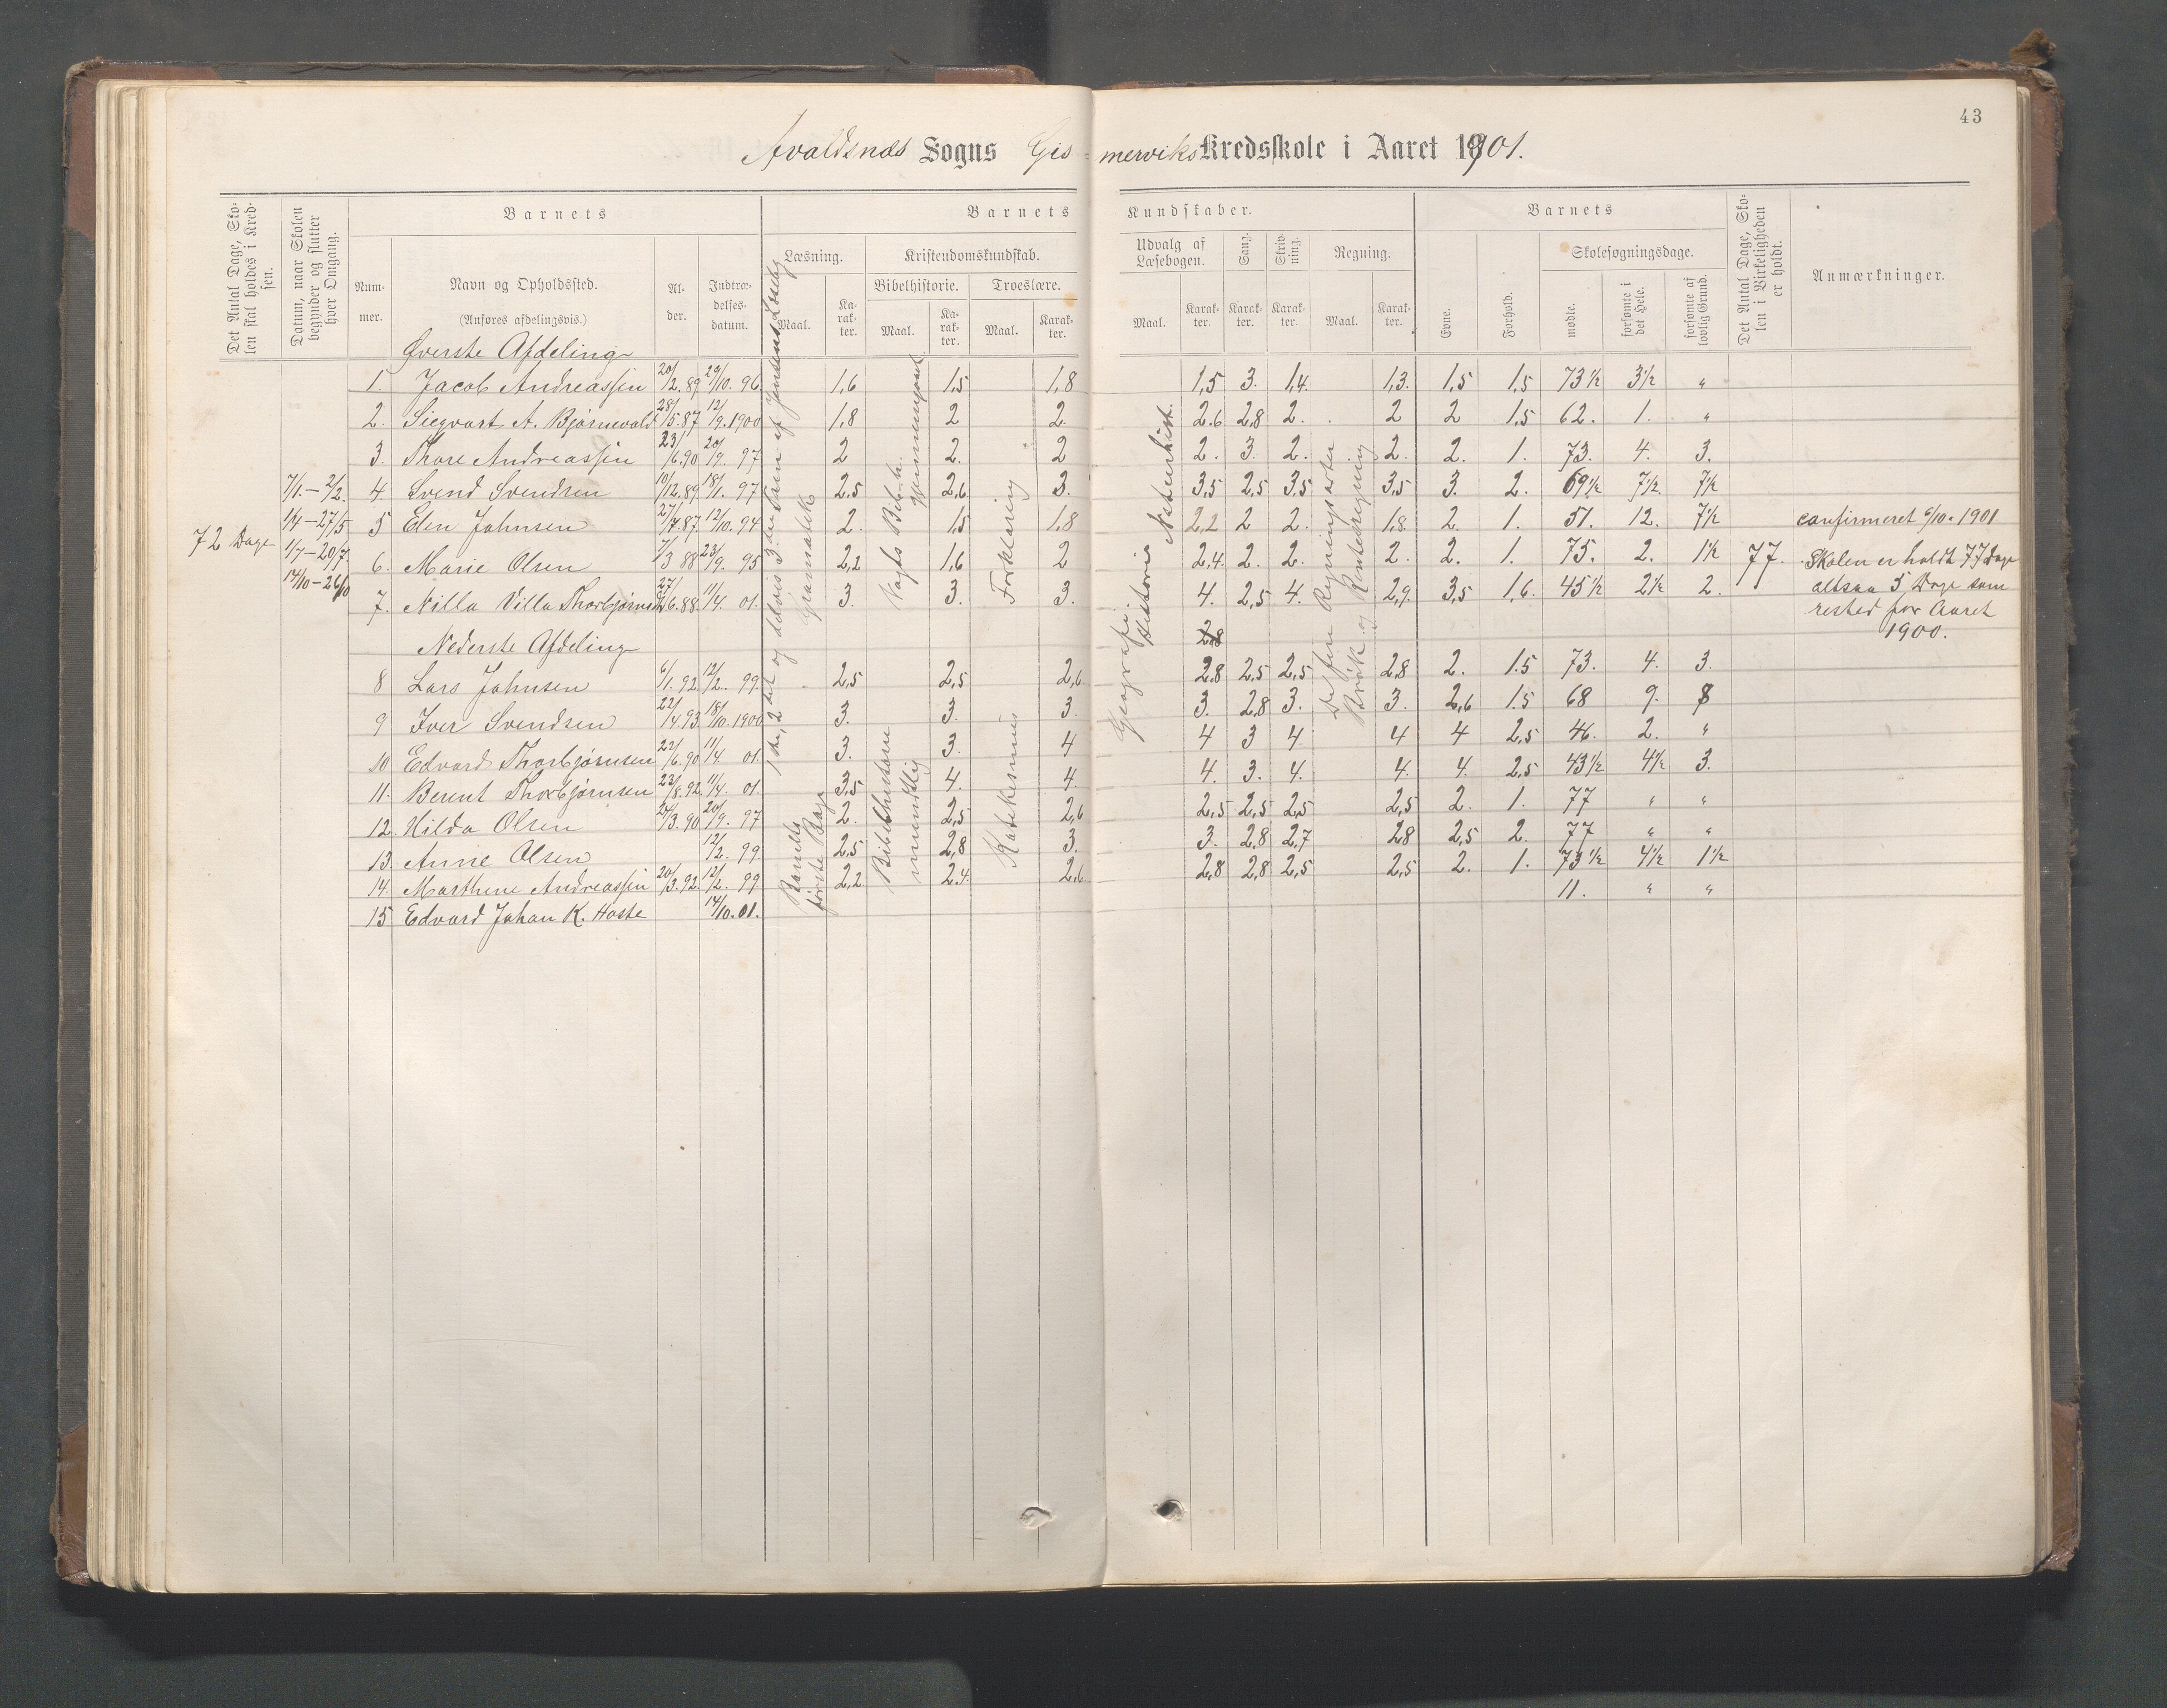 43
Avaldsnæs Sogns Gis-merviks Kredsskole i Aaret 1901.
Det Antal Dage, Skolen skal holdes i Kredsen.
Datum, naar Skolen begynder og slutter hver Omgang.
Barnets
Barnets Kundskaber.
Barnets
Det Antal Dage, Skolen i Virkeligheden er holdt.
Anmærkninger.
Nummer.
Navn og Opholdssted.
(Anføres afdelingsvis.)
Alder.
Indtrædelsesdatum.
Læsning.
Kristendomskundskab.
Bibelhistorie.
Troeslære.
Udvalg af Læsebogen.
Sang.
Skrivning.
Regning.
Evne.
Forhold.
Skolesøgningsdage.
Maal.
Karakter.
Maal.
Karakter.
Maal.
Karakter.
Maal.
Karakter.
Karakter.
Karakter.
Maal.
Karakter.
mødte.
forsømte i det Hele.
forsømte af lovlig Grund.
Øverste Afdeling
1. Jacob Andreassen 20/2.89 29/10.96 1,6 1,5 1,8 1,5 3. 1,4. 1,3. 1,5 1,5 73½ 3½ "
2. Siegvart A. Bjørnevold 28/5.87 12/9.1900 1,8 2 2. 2.6 2,8 2. 2 2 1,5 62. 1. "
3. Thore Andreassen 23/6.90 20/9. 97 2 2. 2 2. 3. 2. 2. 2. 1. 73. 4. 3.
7/1.-2/2. 4. Svend Svendsen 10/12.89 18/1. 97 2,5 2,6 3. 3,5 2,5 3.5 3,5 3. 2. 69½ 7½. 7½
1/4-27/5 5 Elen Johnsen 27/7.87 12/10. 94 2. 1,5 1,8 2,2 2 2. 1,8. 2. 1. 51. 12. 7½ confirmeret 6/10-1901
72 Dage 1/7-20/7. 6. Marie Olsen 7/3 88 23/9. 95 2,2 1,6 2 2,4. 2. 2. 2. 2. 1. 75. 2. 1½ 77. Skolen er holdt 77 Dage
14/10-26/10 7. Nilla Villa Thorbjørnsen 27/6.88. 11/4. 01. 3. 3. 3. 4. 2,5 4. 2,9. 3,5 1,6. 45½ 2½ 2. altsaa 5 Dage som
rested for Aaret
1900.
Nederste Afdeling 2,8
8 Lars Johnsen 6/1.92 12/2. 99. 2,5 2,5 2,6. 2.8 2,5 2,5 2,8 2. 1.5 73. 4. 3.
9 Iver Svendsen 22/4.93. 18/10.1900 3. 3. 3. 3. 2,8 3. 3. 2,6 1.5 68 9. 8
10 Edvard Thorbjørnsen 22/6.90 11/4. 01. 3. 3. 4 4 3 4 4 4 2,5 46. 2. "
11. Berent Thorbjørnsen 23/8.92. 11/4. 01. 3,5 4. 4. 4. 3. 4. 4. 4. 2,5 43½ 4½ 3.
12. Hilda Olsen 24/3.90 20/9. 97 2. 2,5 2,6 2,5 2,5 2,5 2,5 2. 1. 77 " "
13. Anne Olsen 12/2. 99. 2,5 2,8 3. 3. 2,8 2,7 2,8 2,5 2. 77 " "
14. Marthene Andreassen 20/3.92. 12/2. 99 2,2 2,4. 2,6. 2,8 2,8 2,5 2,5 2. 1. 73½ 4½ 1½
15 Edvard Johan K. Haste 14/10.01. 11. " "
1ste, 2det og delvis 3die Trin af Jensens Læseb
Gramatek
Vogts Bibelh. gjennemgaaet
Forklaring
Geografi Historie Naturhist.
De fire Regningsarter
Brøk og Renteregning
Barnets første Bog
Bibelhistorie mundtlig
Katekesmus